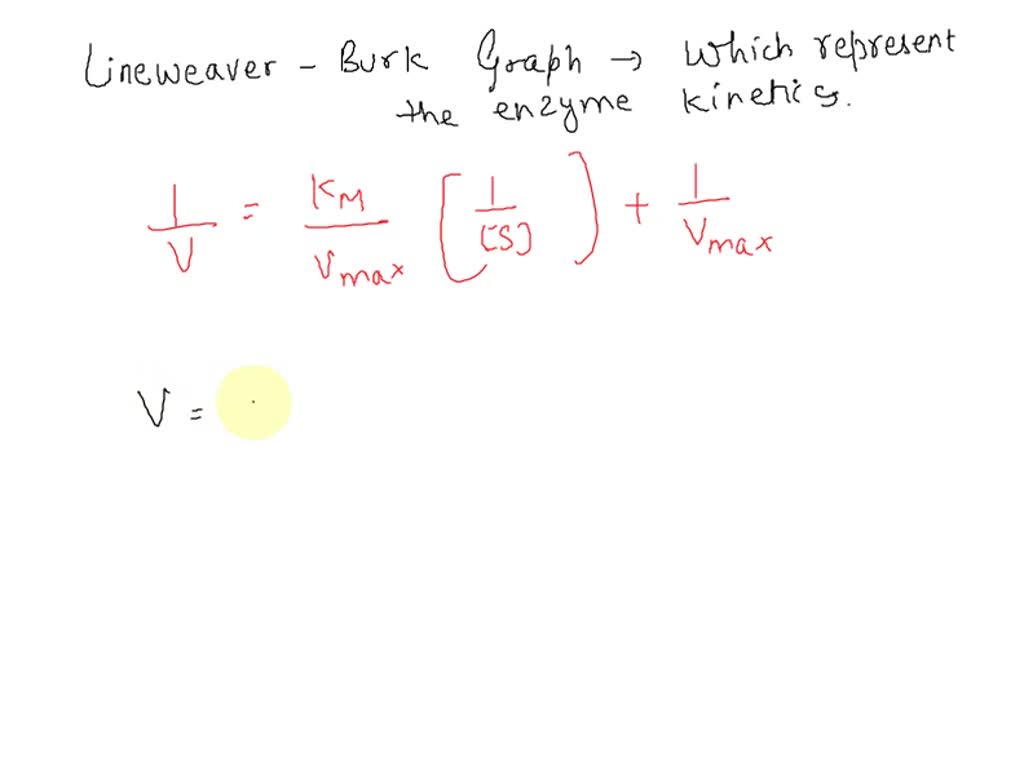 Lineweaver - Burk Graph → Which represent
the enzyme kinetics.
1/V = KM/Vmax [1/[S]] + 1/Vmax
V =